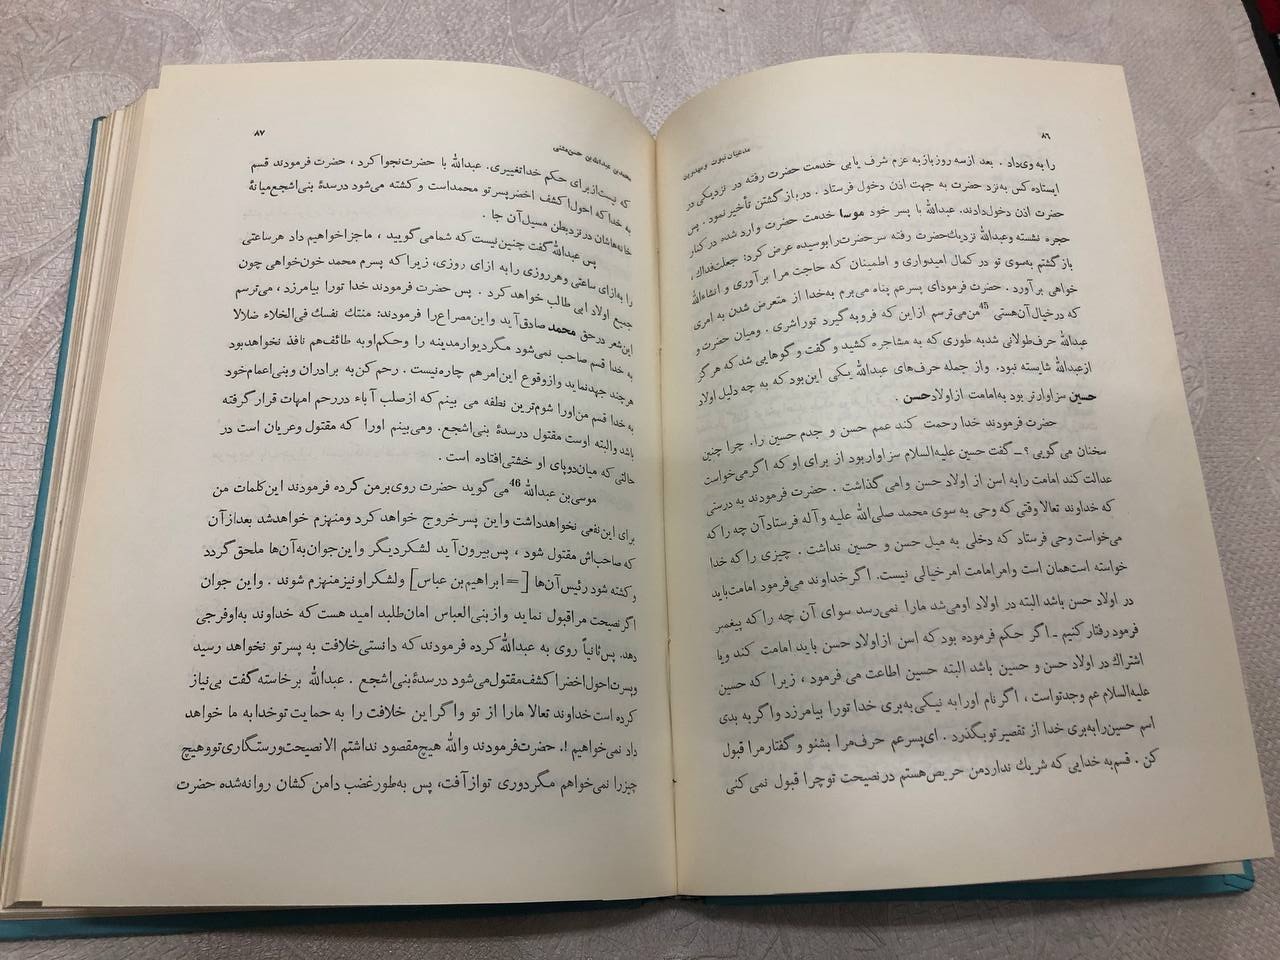 ۸۶
مدعیان نبوت و مهدویت
را به وی داد . بعد از سه روز باز به عزم شرف یابی خدمت حضرت رفته در نزدیکی در
ایستاده کس به نزد حضرت به جهت اذن دخول فرستاد . در باز گشتن تأخیر نمود . پس
حضرت اذن دخول دادند. عبدالله با پسر خود موسا خدمت حضرت وارد شده در کنار
حجره نشسته و عبدالله نزدیك حضرت رفته سر حضرت را بوسیده عرض کرد: جعلت فداك ،
باز گشتم به سوی تو در کمال امیدواری و اطمینان که حاجت مرا بر آوری و انشاءالله
خواهی بر آورد . حضرت فرمود ای پسر عم پناه می برم به خدا از متعرض شدن به امری
که در خیال آن هستی 45 من می ترسم از این که فرو به گیرد تو را شری . و میان حضرت و
عبدالله حرف طولانی شد به طوری که به مشاجره کشید و گفت و گو هایی شد که هر گز
از عبدالله شایسته نبود. و از جمله حرف های عبدالله یکی این بود که به چه دلیل اولاد
حسین سزاوارتر بود به امامت از اولاد حسن .
حضرت فرمودند خدا رحمت کند عمم حسن و جدم حسین را. چرا چنین
سخنان می گویی ؟ ـ گفت حسین علیه السلام سزاوار بود از برای او که اگر می خواست
عدالت کند امامت را به اسن از اولاد حسن وا می گذاشت . حضرت فرمودند به درستی
که خداوند تعالا وقتی که وحی به سوی محمد صلی الله علیه و آله فرستاد آن چه را که
می خواست وحی فرستاد که دخلی به میل حسن و حسین نداشت . چیزی را که خدا
خواسته است همان است و امر امامت امر خیالی نیست. اگر خداوند می فرمود امامت باید
در اولاد حسن باشد البته در اولاد او می شد ما را نمی رسد سوای آن چه را که پیغمبر
فرمود رفتار کنیم ـ اگر حکم فرموده بود که اسن از اولاد حسن باید امامت کند و یا
اشتراك در اولاد حسن و حسین باشد البته حسین اطاعت می فرمود ، زیرا که حسین
علیه السلام عم و جد تو است ، اگر نام او را به نیکی به بری خدا تو را بیامرزد و اگر به بدی
اسم حسین را به بری خدا از تقصیر تو بگذرد . ای پسر عم حرف مرا بشنو و گفتار مرا قبول
کن . قسم به خدایی که شریك ندارد من حریص هستم در نصیحت تو چرا قبول نمی کنی
۸۷
محمد بن عبدالله بن حسن مثنی
که نیست از برای حکم خدا تغییری. عبدالله با حضرت نجوا کرد ، حضرت فرمودند قسم
به خدا که احول اکشف اخضر پسر تو محمد است و کشته می شود در سدهٔ بنی اشجع میانهٔ
خانه هاشان در نزد بطن مسیل آن جا .
پس عبدالله گفت چنین نیست که شما می گویید ، ما جزا خواهیم داد هر ساعتی
را به ازای ساعتی و هر روزی را به ازای روزی، زیرا که پسرم محمد خون خواهی چون
جمیع اولاد ابی طالب خواهد کرد . پس حضرت فرمودند خدا تو را بیامرزد ، می ترسم
این شعر در حق محمد صادق آید و این مصراع را فرمودند: منتك نفسك فی الخلاء ضلالا
به خدا قسم صاحب نمی شود مگر دیوار مدینه را و حکم او به طائف هم نافذ نخواهد بود
هر چند جهد نماید و از وقوع این امر هم چاره نیست . رحم کن به برادران و بنی اعمام خود
به خدا قسم من او را شوم ترین نطفه می بینم که از صلب آباء در رحم امهات قرار گرفته
باشد والبته اوست مقتول در سدهٔ بنی اشجع. و می بینم او را که مقتول و عریان است در
حالتی که میان دو پای او خشتی افتاده است .
موسی بن عبدالله 46 می گوید حضرت روی بر من کرده فرمودند این کلمات من
برای این نفعی نخواهد داشت و این پسر خروج خواهد کرد و منهزم خواهد شد بعد از آن
که صاحب اش مقتول شود ، پس بیرون آید لشکر دیگر و این جوان به آن ها ملحق گردد
و کشته شود رئیس آن ها [= ابراهیم بن عباس] و لشکر او نیز منهزم شوند . و این جوان
اگر نصیحت مرا قبول نماید و از بنی العباس امان طلبد امید هست که خداوند به او فرجی
دهد. پس ثانیاً روی به عبدالله کرده فرمودند که دانستی خلافت به پسر تو نخواهد رسید
و پسرت احول اخضر اکشف مقتول می شود در سدهٔ بنی اشجع . عبدالله بر خاسته گفت بی نیاز
کرده است خداوند تعالا ما را از تو و اگر این خلافت را به حمایت تو خدا به ما خواهد
داد نمی خواهیم !. حضرت فرمودند والله هیچ مقصود نداشتم الا نصیحت و رستگاری تو و هیچ
چیز را نمی خواهم مگر دوری تو از آفت، پس به طور غضب دامن کشان روانه شده حضرت